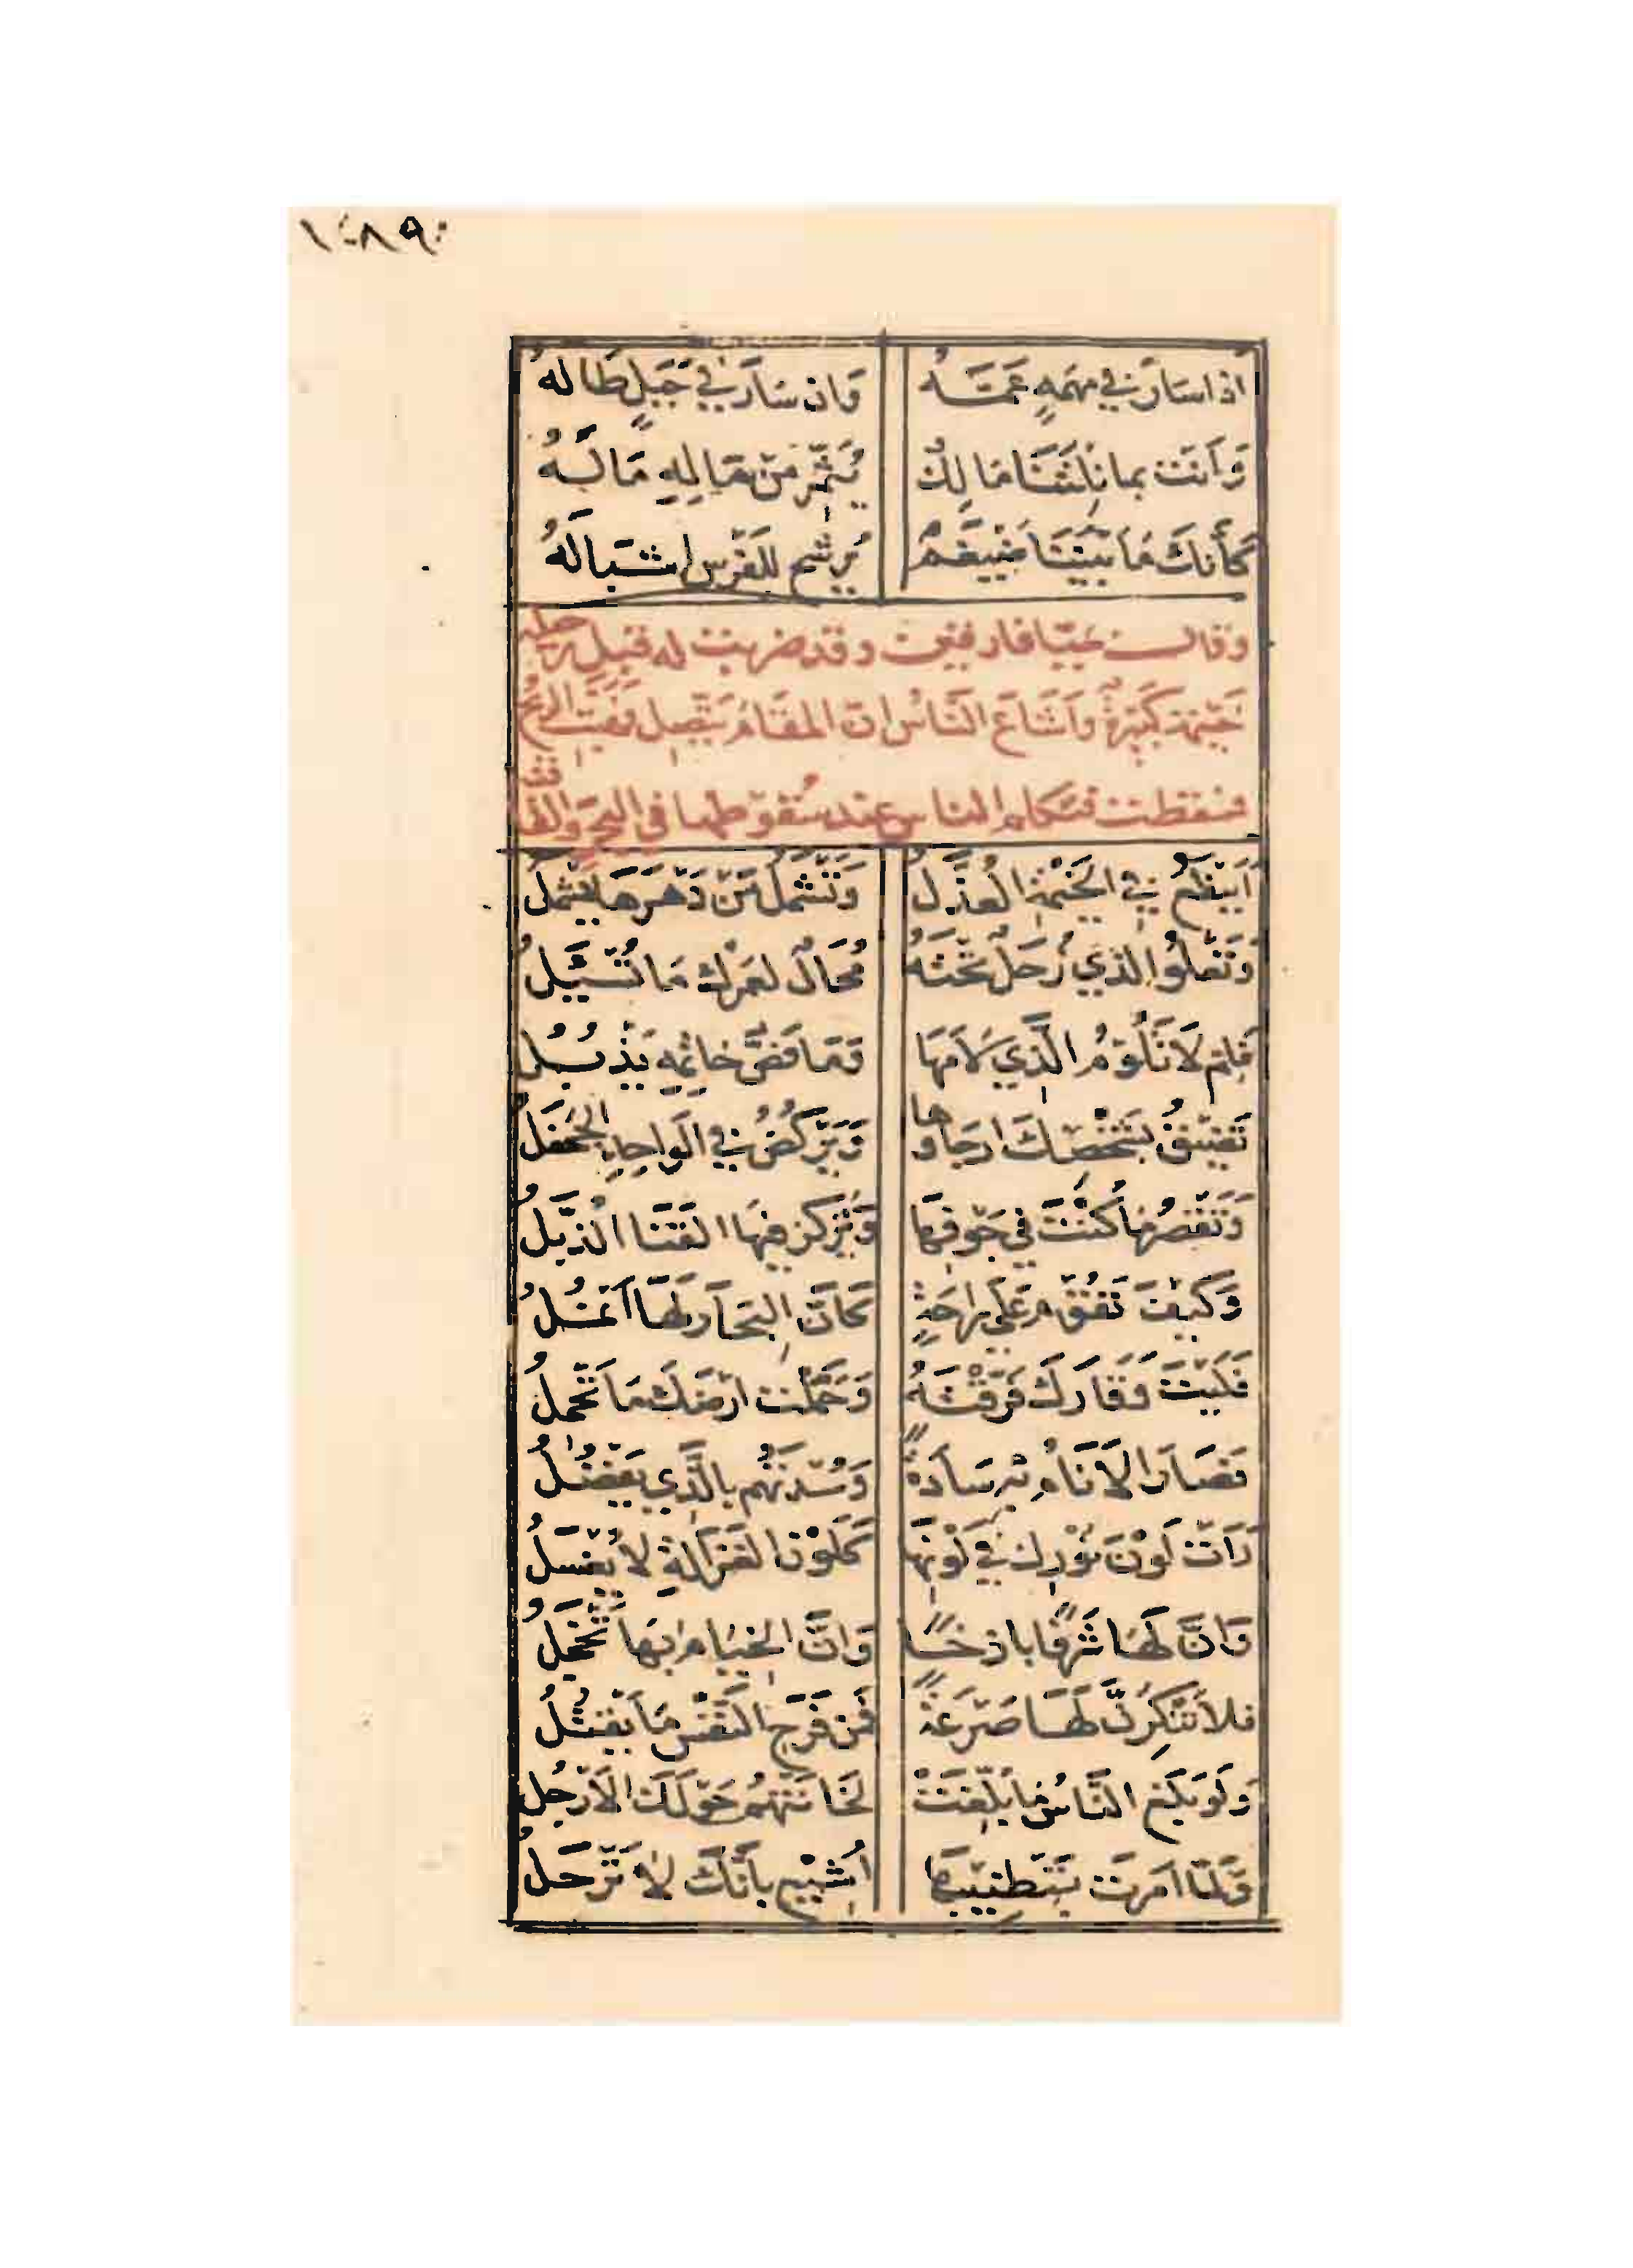 ١٠٨٩
اذا سَارَ في مهمَهٍ عَمَّهُ وَان سَارَ في جَبَلٍ طَالهُ
وَاَنتَ بما نلتَنَا مَالِكٌ يُثَمِّرُ مِن مَالِهِ مَالَهُ
كَأنكَ مَا بَيْنَنَا ضَيغَمٌ يُرَشِّح للفَرْسِ اشبَالَهُ
وَقالـــ بميّافارقين وقد ضربت له قبل رحيله
خَيمة كَبِيرَةٌ وَاشَاعَ النَّاسُ انّ المقَامَ يتّصِل وهَبَّت الريح
فسَقطت فتكلم الناس عند سُقوطها في
اَيَنْفَعُ في الخَيْمَةِ العُذَّلُ وَتَشْمَلُ مَنْ دَهرَهَا يَشمَلُ
وَتَعْلُوا الذي زُحَلٌ تَحْتَهُ مُحَالٌ لعَمْرُكَ مَا تُسْئَلُ
فَلِم لاَ تَلُوْمُ الَّذِي لاَمَهَا وَمَا فَصُّ خاتمِهِ يَذْبُلُ
تَضِيقُ بشَخْصِكَ ارجَاؤها وَيَركُضُ في الوَاحِدِ الجَحْفَلُ
وَتَقْصُرُ مَا كُنْتَ في جَوفِهَا وَيُركَز فِيهَا القَنَا الذُّبَّلُ
وَكَيْفَ تَقُوْمُ عَلَى رَاحَةٍ كَأنَّ البِحَارَ لَهَا اَنمُلُ
فَلَيْتَ وَقَارَكَ فَرَّقْتَهُ وَحَمَّلْت ارْضَكَ مَا تَحْمِلُ
فَصَارَ الاَنَامُ بِهِ سَادَةً وَسُدْتَهُم بالَّذِي يَفْضُلُ
رَاَت لَوْنَ نُوْرِكَ في لَوْنِهَا كَلَوْنِ الغَزَالَةِ لاَ يُغْسَلُ
وَاَنَّ لَهَا شَرَفًا باذخًا وَاَنَّ الخيَامَ بِهَا تَخْجَلُ
فلاَ تُنْكِرَنَّ لَهَا صَرْعَةً فَمِن فَرَحِ النَّفْسِ مَا يَقْتُلُ
وَلَو بَلَغَ النَّاسُ مَا بُلِّغَتْ لَخَانَتْهُمُ حَوْلَكَ الاَرْجُلُ
وَلمَّا اَمَرْتَ بتَطْنِيبِهَا اُشِيْعَ بِأنَّكَ لاَ تَرْحَلُ